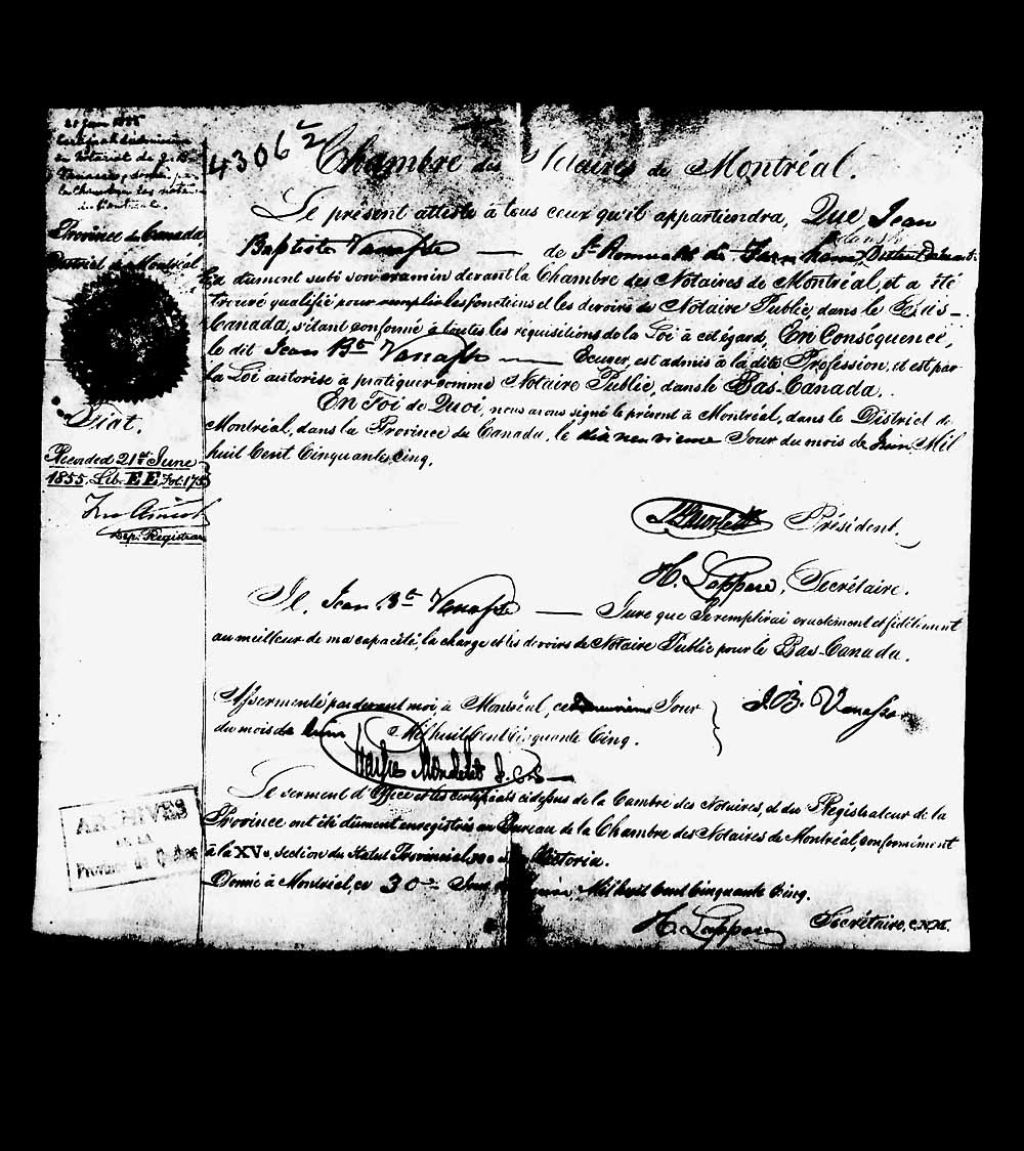 21 Juin 1855
Certificat d'admission
au Notariat de J. B.
Vanasse, donné par
la Chambre des notaires
de Montréal.
Province du Canada
District de Montréal
Fiat.
Recorded 21st June
1855, Lib. EE Fol. 175
Dep. Registrar
ARCHIVES
DE LA
Province de Québec
4306 2
Chambre des Notaires de Montréal.
Le présent atteste à tous ceux qu'il appartiendra, Que Jean
Baptiste Vanasse — de St Romuald de Farnham
a dument subi son examin devant la Chambre des Notaires de Montréal, et a été
trouvé qualifié, pour remplir les fonctions et les devoirs de Notaire Public, dans le Bas-
Canada, s'étant conformé à toutes les requisitions de la Loi à cet égard, En Conséquence,
le dit Jean Bte Vanasse — Ecuyer, est admis à la dite Profession, et est par
la Loi autorisé à pratiquer comme Notaire Public, dans le Bas-Canada.
En Foi de Quoi, nous avons signé le présent à Montréal, dans le District de
Montréal, dans la Province du Canada, le dix neuvieme Jour du mois de Juin Mil
huit Cent Cinquante cinq.
Président.
H. Lappare, Secrétaire.
Je, Jean Bte Vanasse — Jure que Je remplirai exactement et fidèlement
au meilleur de ma capacité, la charge et les devoirs de Notaire Public pour le Bas-Canada.
Assermenté pardevant moi à Montréal, ce Jour
du mois de Juin Mil huit Cent Cinquante Cinq.
J. B. Vanasse
Charles Mondelet J. C. S —
Le serment d'Office et les certificats cidessus de la Cambre des Notaires, et du Régistrateur de la
Province ont été dûment enregistrés au Bureau de la Chambre des Notaires de Montréal, conformément
à la XVe, section du Statut Provincial, Victoria.
Donné à Montréal, ce 30 Jour de Juin Mil huit Cent Cinquante Cinq.
H. Lappare Secrétaire, C.N.M.